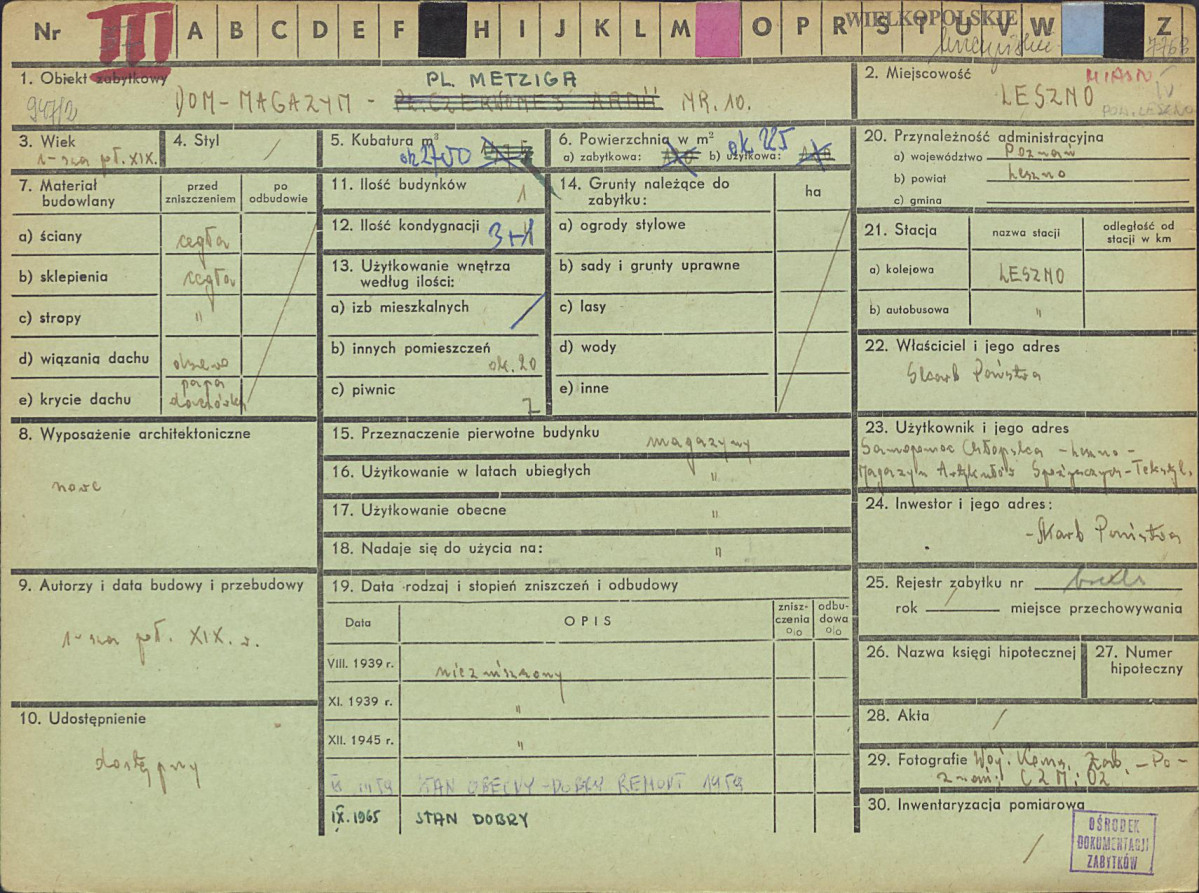 Nr III A B C D E F H I J K L M O P R S T U V W Z
WIELKOPOLSKIE
7763
1. Obiekt zabytkowy
PL. METZIGA
947/2
DOM-MAGAZYM - PL. CZERWONEJ ARMII NR. 10.
2. Miejscowość
MIASTO
LESZNO
IV
POW. LESZNO
3. Wiek
1-sza pł. XIX.
4. Styl
/
5. Kubatura m³
ok 2750
6. Powierzchnia w m²
ok 225
a) zabytkowa: b) użytkowa:
7. Materiał budowlany
przed zniszczeniem
po odbudowie
a) ściany cegła
b) sklepienia cegła
c) stropy "
d) wiązania dachu drzewo
e) krycie dachu papa
dachówka
8. Wyposażenie architektoniczne
nowe
9. Autorzy i data budowy i przebudowy
1-sza poł. XIX. w.
10. Udostępnienie
dostępny
11. Ilość budynków 1
12. Ilość kondygnacji 3+1
13. Użytkowanie wnętrza według ilości:
a) izb mieszkalnych /
b) innych pomieszczeń ok. 20
c) piwnic 7
14. Grunty należące do zabytku:
ha
a) ogrody stylowe
b) sady i grunty uprawne
c) lasy
d) wody
e) inne
15. Przeznaczenie pierwotne budynku magazyny
16. Użytkowanie w latach ubiegłych "
17. Użytkowanie obecne "
18. Nadaje się do użycia na: "
19. Data rodzaj i stopień zniszczeń i odbudowy
Data
OPIS
znisz-
czenia
o|o
odbu-
dowa
o|o
VIII. 1939 r. niezniszczony
XI. 1939 r. "
XII. 1945 r. "
STAN OBECNY - DOBRY REMONT 1959
IX. 1965 STAN DOBRY
20. Przynależność administracyjna
a) województwo Poznań
b) powiat Leszno
c) gmina
21. Stacja
nazwa stacji
odległość od stacji w km
a) kolejowa LESZNO
b) autobusowa "
22. Właściciel i jego adres
Skarb Państwa
23. Użytkownik i jego adres
Samopomoc Chłopska - Leszno -
Magazyn Artykułów Spożywczych - Tekstyl.
24. Inwestor i jego adres:
- Skarb Państwa
25. Rejestr zabytku nr
rok / miejsce przechowywania
26. Nazwa księgi hipotecznej
27. Numer hipoteczny
28. Akta /
29. Fotografie Woj. Kons. Zab. - Po-
znań: C Z M i OZ
30. Inwentaryzacja pomiarowa
/
OŚRODEK
DOKUMENTACJI
ZABYTKÓW